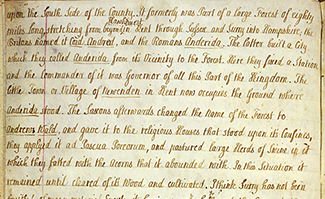 upon the South Side of the County. It formerly was Part of a large Forest of eighty
miles long, stretching from beyond in Kent through Sussex and Surry into Hampshire, the
Britons named it Coid Andred, and the Romans Anderida. The latter built a City
which they called Anderida, from its Vicinity to the Forest. Here they fixed a Station
and the Commander of it was Governor of all this Part of the Kingdom. The
little Town or Village of Newenden in Kent now occupies the Ground where
Anderida stood. The Saxons afterwards changed the Name of the Forest to
Andreds Wald, and gave it to the religious Houses that stood upon its Confines,
they applied it ad Pascua Porcorum, and pastured large Herds of Swine in it
which they fatted with the Acorns that it abounded with. In this Situation it
remained until cleared of its Wood and cultivated. I think Surry has not been